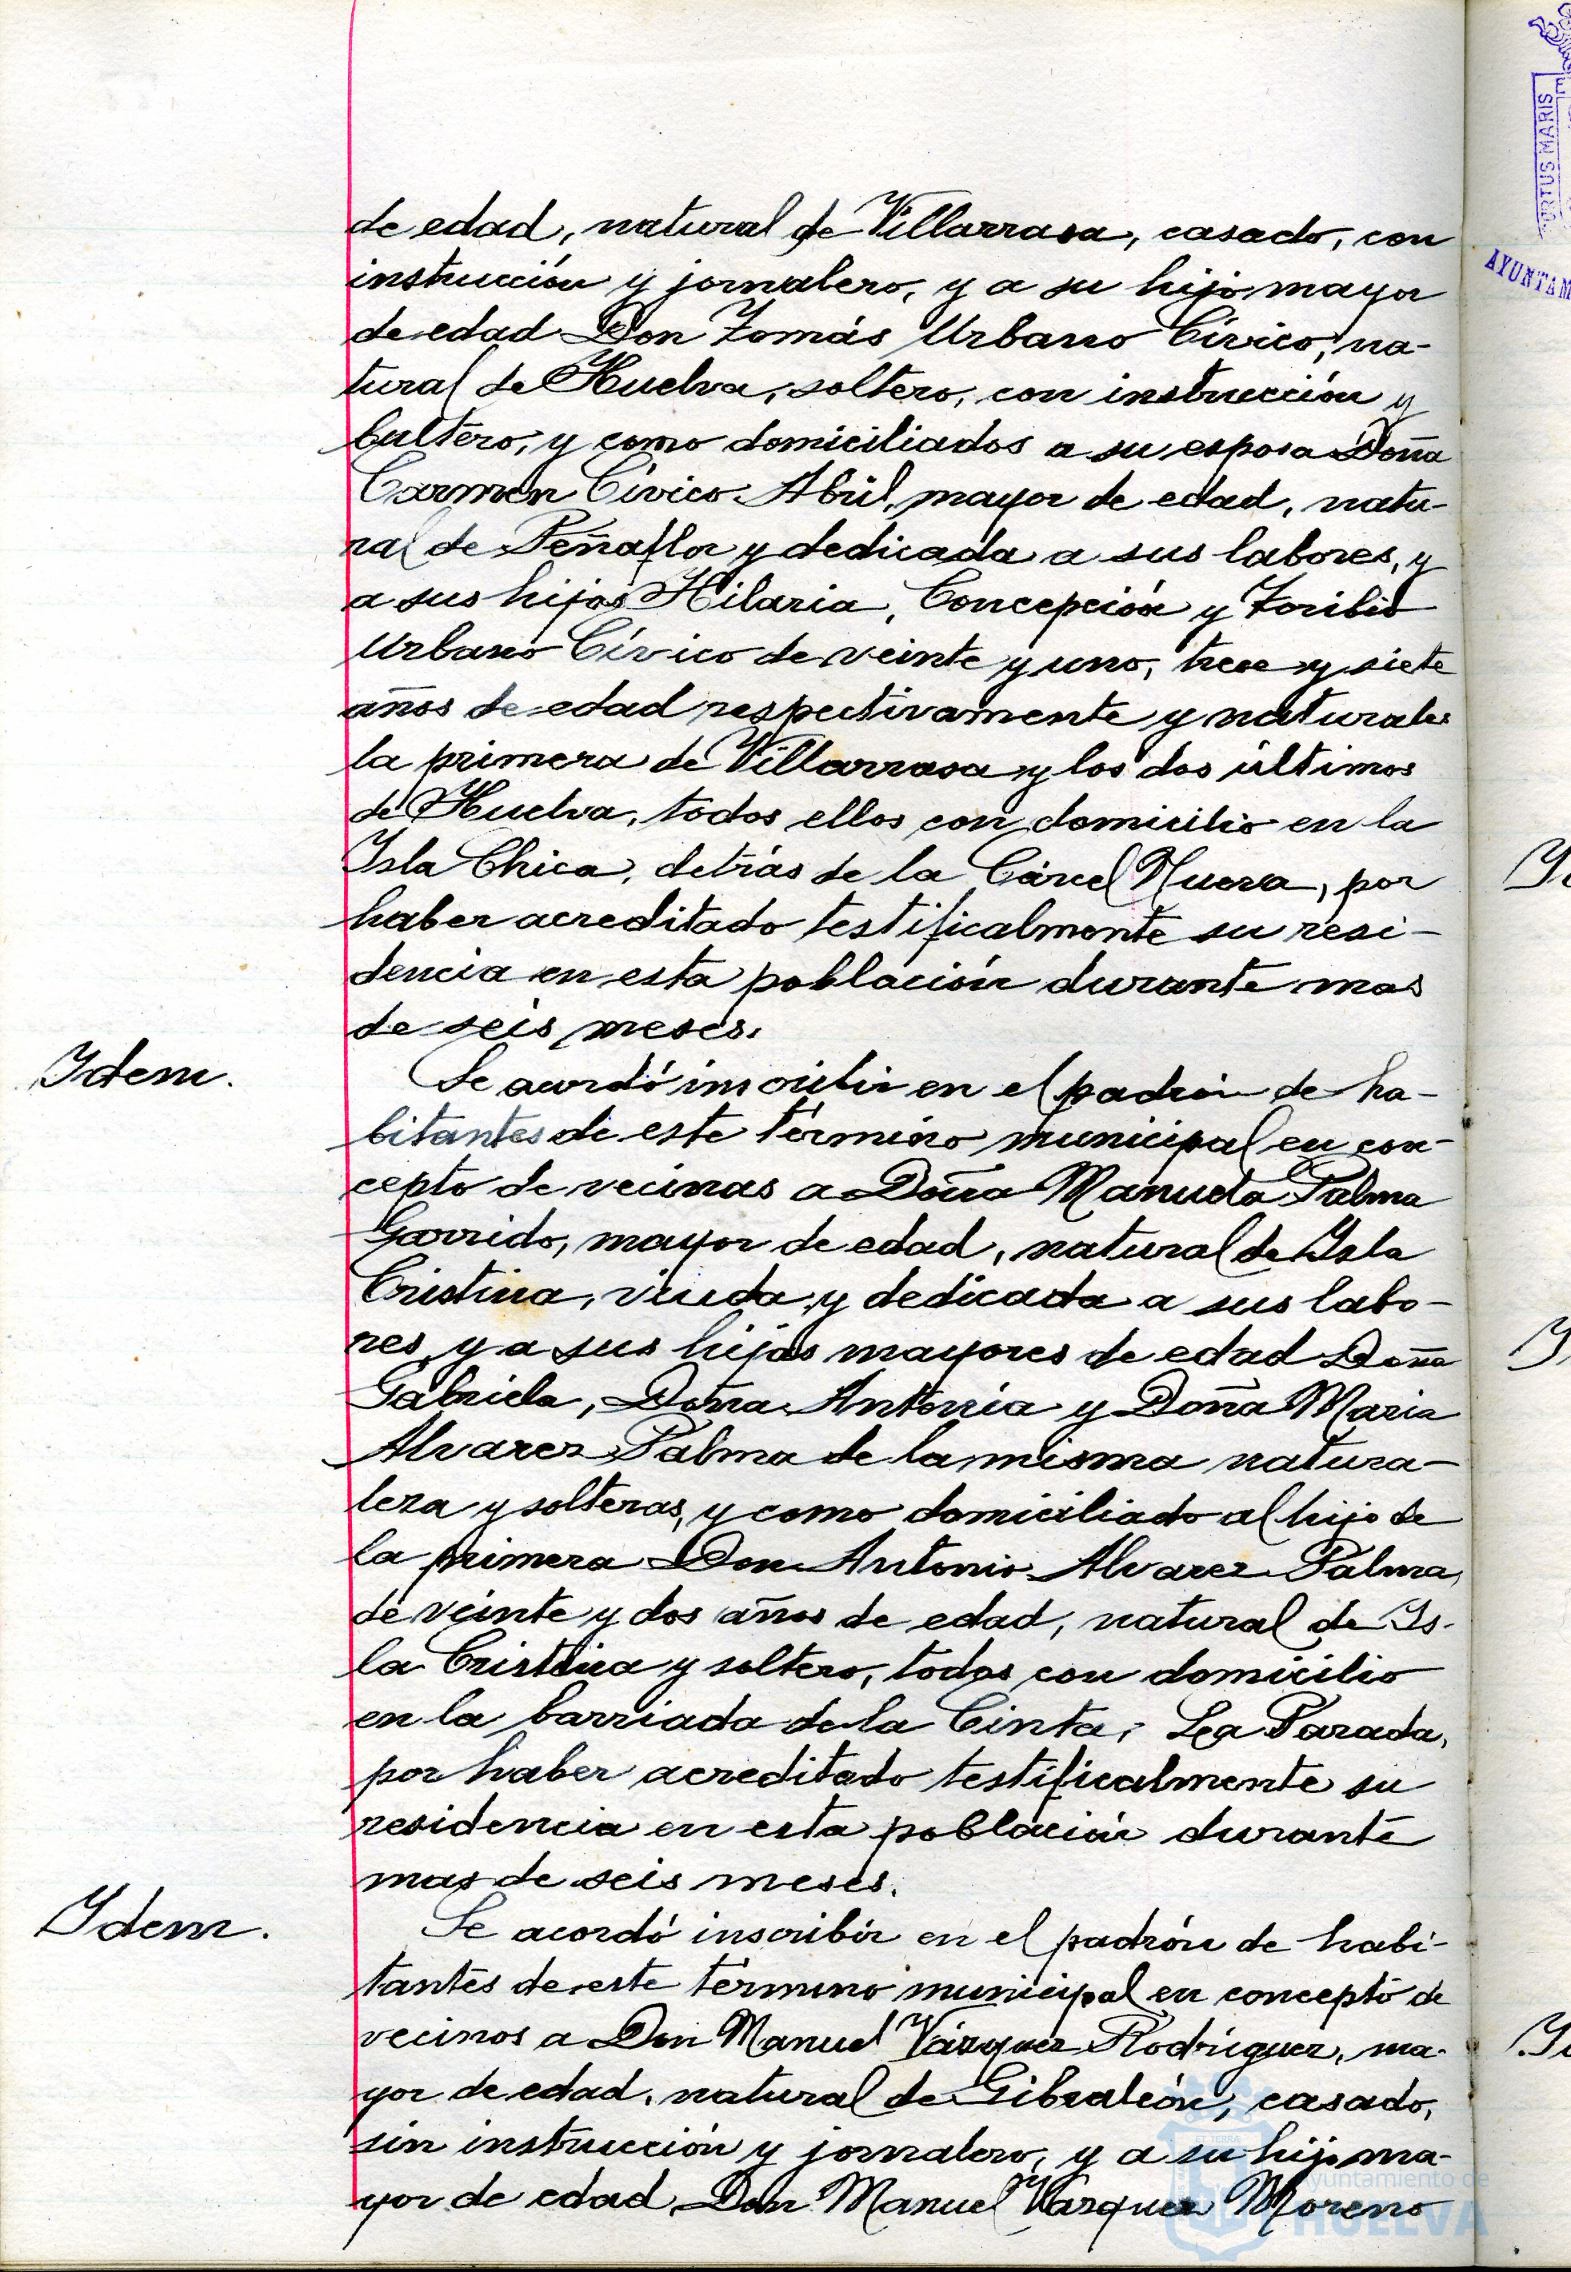 de edad, natural de Villarrasa, casado, con
instrucción y jornalero, y a su hijo mayor
de edad Don Tomás Urbano Cívico, na-
tural de Huelva, soltero, con instrucción y
bultero, y como domiciliados a su esposa Doña
Carmen Cívico Abril, mayor de edad, natu-
ral de Peñaflor y dedicada a sus labores, y
a sus hijos Hilaria, Concepción y Toribio
Urbano Cívico de veinte y uno, trece y siete
años de edad respectivamente y naturales
la primera de Villarrasa y los dos últimos
de Huelva, todos ellos con domicilio en la
Isla Chica, detrás de la Cárcel Nueva, por
haber acreditado testificalmente su resi-
dencia en esta población durante mas
de seis meses.
Idem.
Se acordó inscribir en el padrón de ha-
bitantes de este término municipal en con-
cepto de vecinas a Doña Manuela Palma
Garrido, mayor de edad, natural de Isla
Cristina, viuda y dedicada a sus labo-
res y a sus hijas mayores de edad Doña
Gabriela, Doña Antonia y Doña Maria
Alvarez Palma de la misma natura-
leza y solteras, y como domiciliado al hijo de
la primera Don Antonio Alvarez Palma,
de veinte y dos años de edad, natural de Is-
la Cristina y soltero, todos con domicilio
en la barriada de la Cinta, La Parada,
por haber acreditado testificalmente su
residencia en esta población durante
mas de seis meses.
Idem.
Se acordó inscribir en el padrón de habi-
tantes de este término municipal en concepto de
vecinos a Don Manuel Vázquez Rodríguez, ma-
yor de edad, natural de Gibraleón, casado,
sin instrucción y jornalero, y a su hijo ma-
yor de edad Don Manuel Vázquez Moreno
ORTUS MARIS
AYUNTAM
ET TERRÆ
Ayuntamiento de
HUELVA